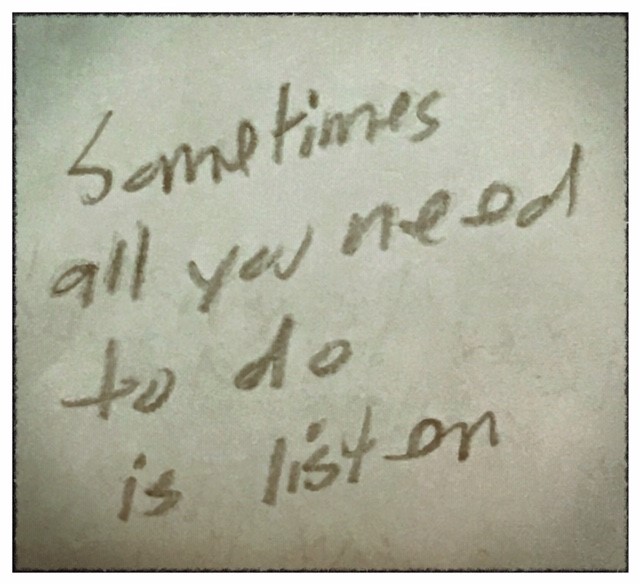 Sometimes
all you need
to do
is listen